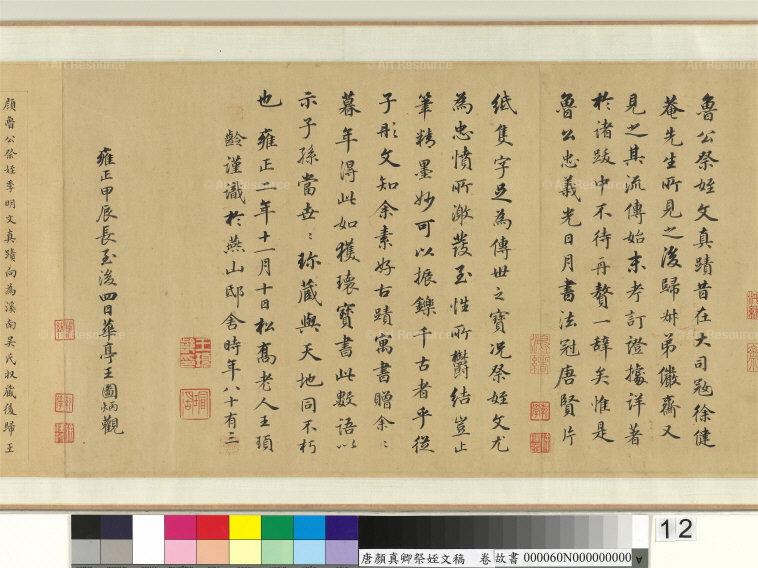 魯公祭姪文真蹟昔在大司寇徐健
菴先生所見之後歸姒弟儼齋又
見之其流傳始末考訂證據詳著
於諸跋中不待再贅一辭矣惟是
魯公忠義光日月書法冠唐賢片
紙隻字足為傳世之寶況祭姪文尤
為忠憤所激發至性所鬱結豈止
筆精墨妙可以振鑠千古者乎從
子彤文知余素好古蹟寓書贈余ミ
暮年得此如獲瓌寶書此數語以
示子孫當世ミ珍藏與天地同不朽
也 雍正二年十一月十日松喬老人王頊
齡謹識於燕山邸舍時年八十有三
雍正甲辰長至後四日華亭王圖炳觀
顏魯公祭姪季明文真蹟向為溪南吳氏收藏後歸王
唐顏真卿祭姪文稿 卷 故書 000060N000000000
12
© Art Resource